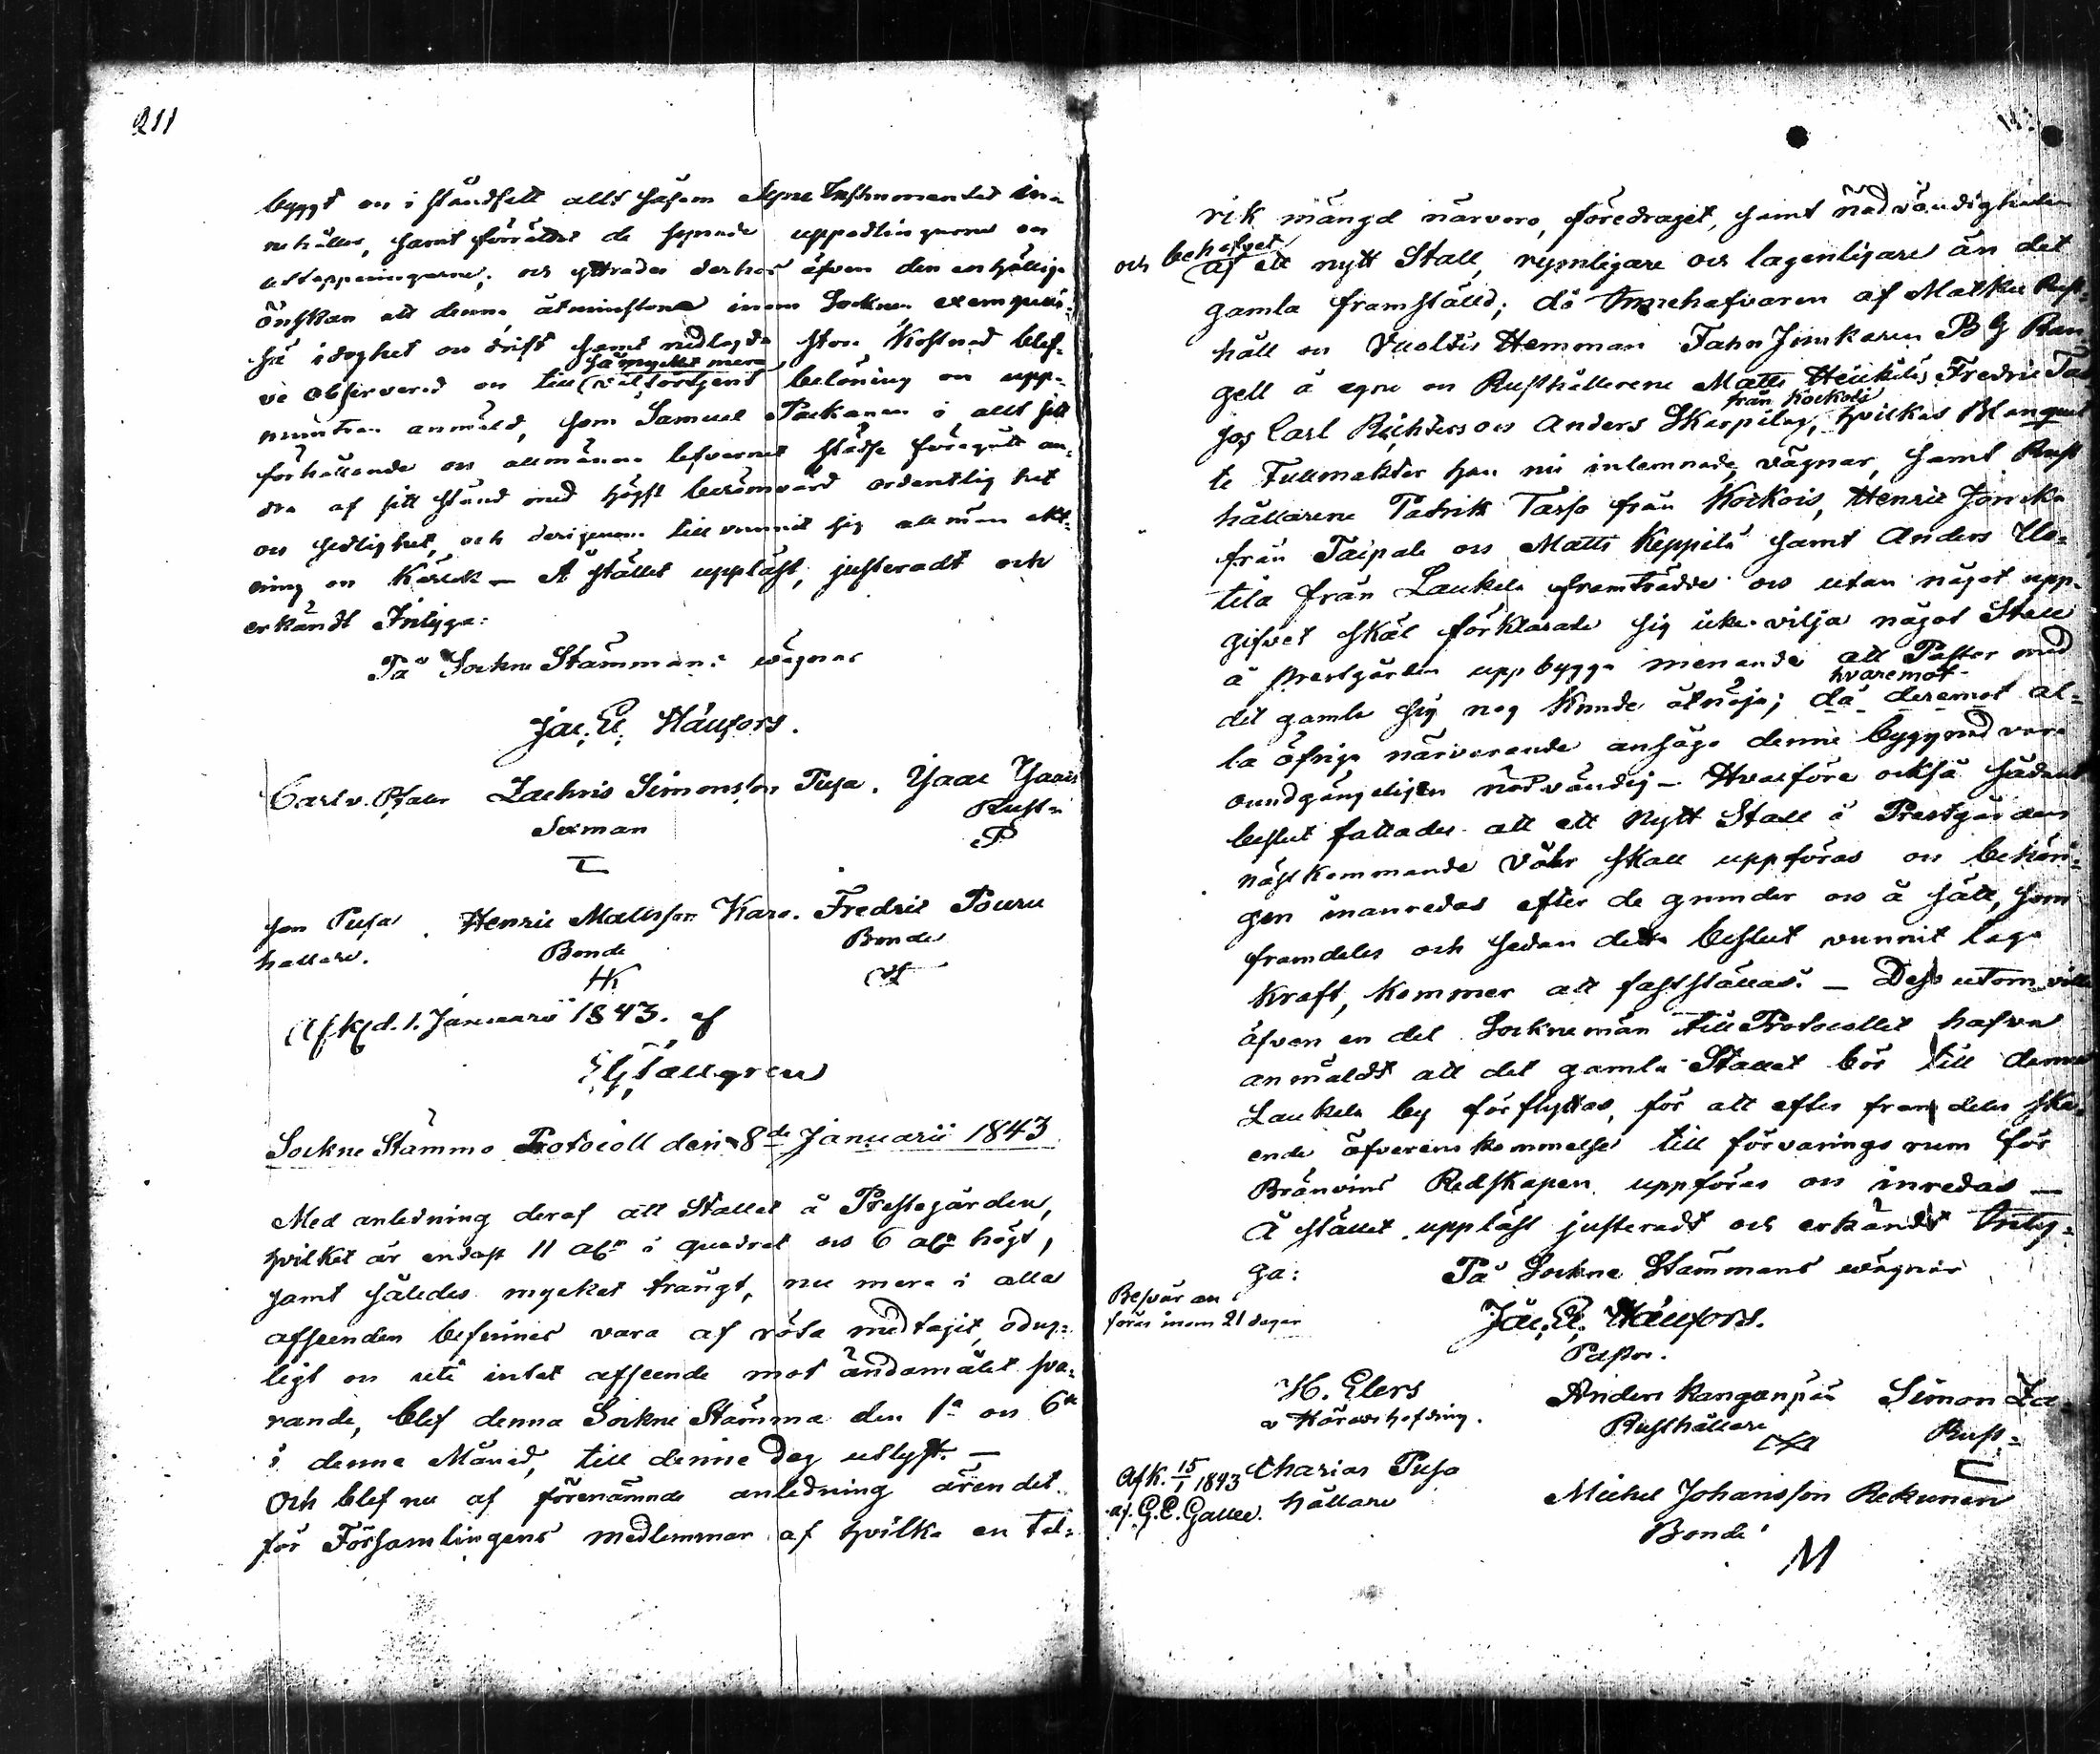 211
byggt och i ståndsatt allt såsom Syne Instrumentet in-
nehåller, samt förrättat de synade uppodlingarne och
uttappningarne; och yttrades derhos äfven den enhällige
önskan att denna, åtminstone inom Socknen exempellö-
sa idoghet och drift samt nedlagde stora Kostnad blef-
ve observerad och till
så mycket mera
välförtjent belöning och upp-
muntran anmäld, som Samuel Packanen i allt sitt
förhållande och allmänna lefvernet städse föregått an-
dra af sitt stånd med högst berömvärd ordentlighet
och sedlighet, och derigenom tillvunnit sig allmän akt-
ning och Kärlek — Å stället uppläst, justeradt och
erkändt Intyga:
På Sockne Stämmans wägnar
Jac. El. Häufors.
Carl v. Pfaler Zachris Simonsson Pusa. Isaac Isaacs
Sexman Rust-
son Pusa . Henric Mattsson Karo. Fredric Pouru
hållare. Bonde Bonde
HK
Afk. d. 1. Januarii 1843. af
G Tallgren
Sockne Stämmo Protocoll den 8de Januarii 1843
Med anledning deraf att Stallet å Prestegården,
hvilket är endast 11 aln i quadrat och 6 aln högt,
samt således mycket trångt, nu mera i alla
afseenden befinnes vara af röta medtagit, odug-
ligt och uti intet afseende mot ändamålet sva-
rande, blef denna Sockne Stämma den 1a och 6te
i denna Månad, till denne dag utlyst. —
Och blef nu af förenämnde anledning ärendet
för Församlingens medlemmar af hvilka en tal-
rik mängd närvoro, föredraget, samt nödvändigheten
och behofvet
af ett nytt Stall, rymligare och lagenligare än det
gamla framställd; då Innehafvaren af Matku Rust-
håll och Vuoltis Hemman Fahn Junkaren B G Ran-
gell å egne och Rusthållerene Matts Heickilä, Fredric Tas
från Kockois
Jos Carl Richters och Anders Skarpilas, hvilkas Blanquet
te Fullmakter han nu inlemnade, vägnar, samt Rust
hållarene Patrik Tasso från Kockois, Henric Joncka
från Taipale och Matts Keppilä samt Anders Ylo-
tila från Laukela framträdde och utan något upp-
gifvet skäl förklarade sig icke vilja något Stall
å prestgården uppbygga menande att Pastor med
hvaremot
det gamla sig nog kunde åtnöja; då deremot al-
la öfriga närvarande ansågo denne byggnad vara
oundgängeligen nödvändig — Hvarföre också sådant
beslut fattades att ett Nytt Stall å Prestgården
nästkommande Vår skall uppföras och behöri-
gen inanredas efter de grunder och å sätt, som
framdeles och sedan detta beslut vunnit laga
kraft, kommer att fastställas. — Dess utom ville
äfven en del Sockne män till Protocollet hafva
anmäldt att det gamla Stallet bör till denna
Laukela by förflyttas, för att efter framdeles ske-
ende öfverenskommelse till förvarings rum för
Bränvins Redskapen uppföras och inredas —
Å stället uppläst justeradt och erkändt Inty-
ga: På Sockne Stämmans wägnar
Besvär an
föras inom 21 dagar
Jac. El. Häufors.
Pastor.
H. Elers Anders Kanganpää Simon Za-
v Häradshöfding. Rusthållare Rust-
Afk. 15/1 1843 charias Pusa
af. G. E. Gallee. hållare
Michel Johansson Rekunen
Bonde
M